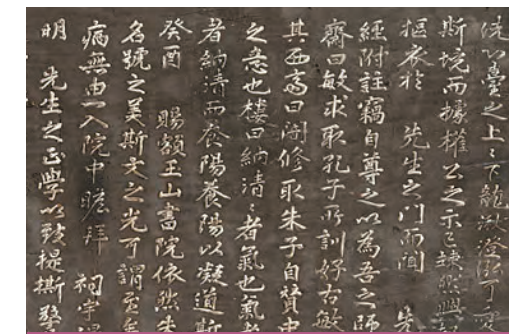 以臺之上〻下龍湫澄泓可
斯境而據權公之示已竦然興
摳衣於 先生之門而聞 先
經附註竊自尊之以為吾之師
齋曰敏求取孔子所訓好古敏
其西齋曰闇修取朱子自贊中
之意也樓曰納清〻者氣也氣
者納清而養陽養陽以凝道斯
癸酉 賜額玉山書院依然朱
名號之美斯文之光可謂至矣
病無由一入院中瞻拜 祠宇
明 先生之正學以致提撕警